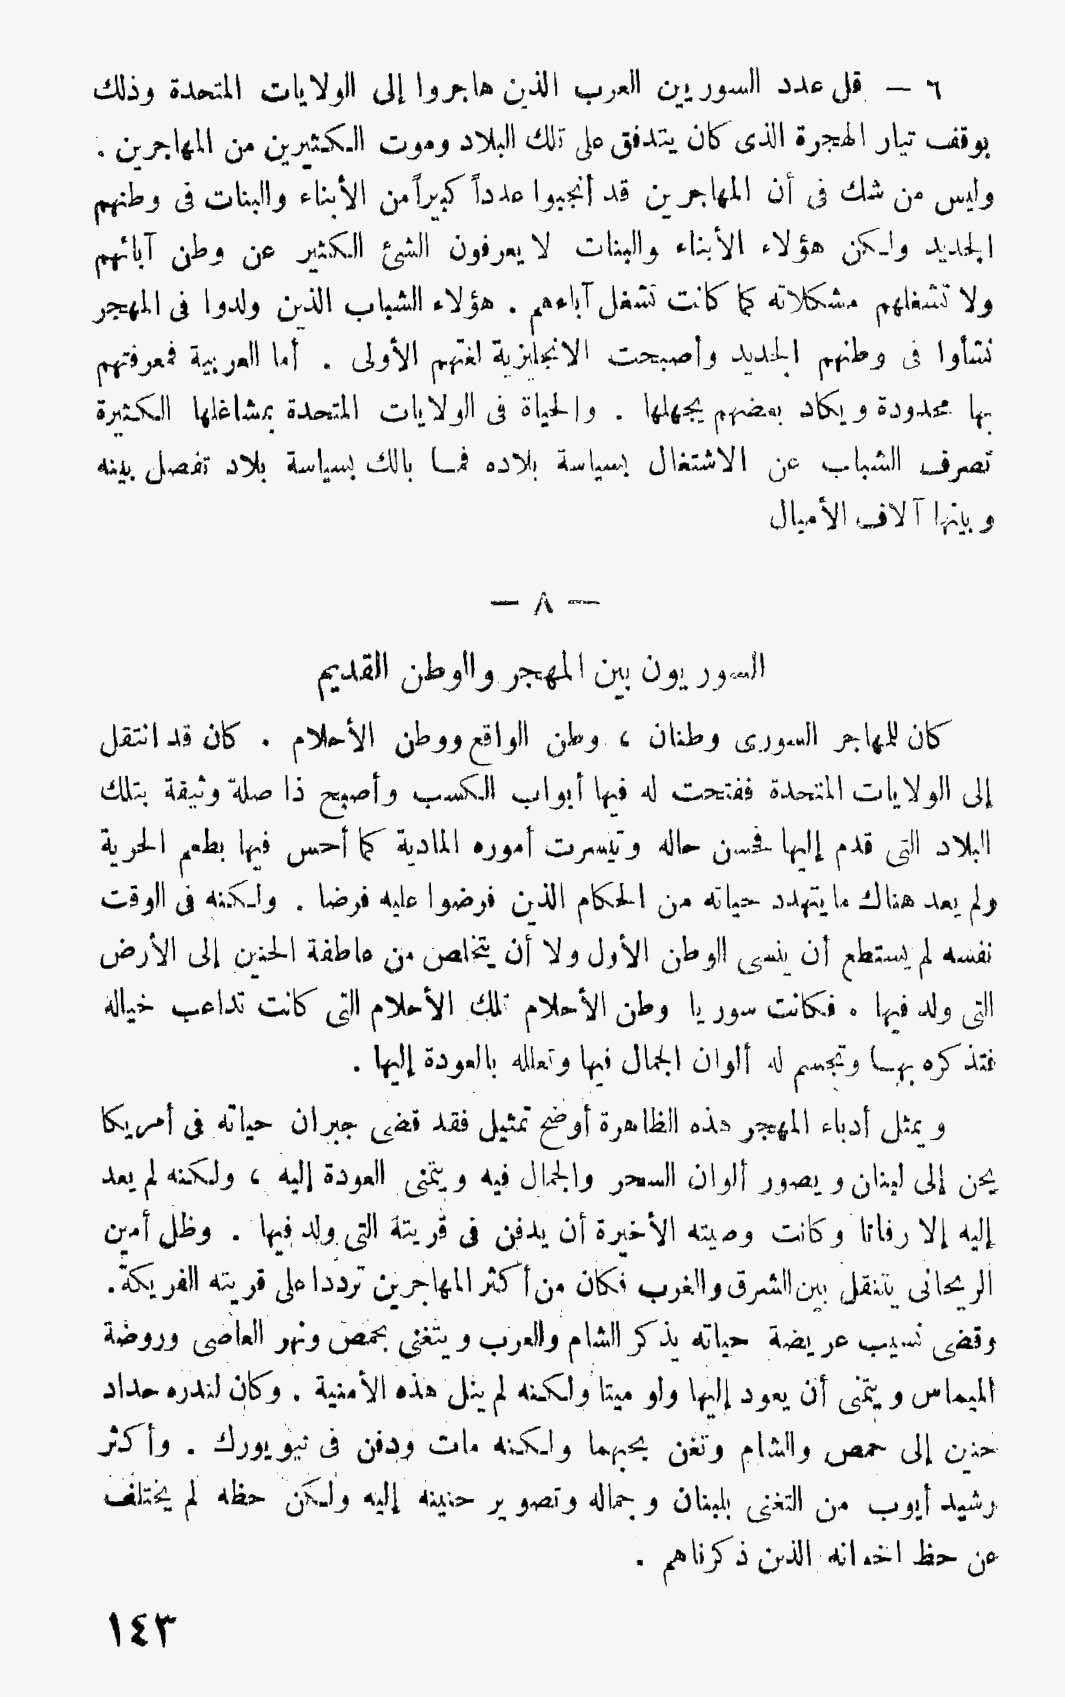 ٦ — قل عدد السوريين العرب الذين هاجروا إلى الولايات المتحدة وذلك
بوقف تيار الهجرة الذى كان يتدفق على تلك البلاد وموت الكثيرين من المهاجرين .
وليس من شك فى أن المهاجرين قد أنجبوا عدداً كبيراً من الأبناء والبنات فى وطنهم
الجديد ولكن هؤلاء الأبناء والبنات لا يعرفون الشئ الكثير عن وطن آبائهم
ولا تشغلهم مشكلاته كما كانت تشغل آباءهم . هؤلاء الشباب الذين ولدوا فى المهجر
نشأوا فى وطنهم الجديد وأصبحت الانجليزية لغتهم الأولى . أما العربية فمعرفتهم
بها محدودة ويكاد بعضهم يجهلها . والحياة فى الولايات المتحدة بمشاغلها الكثيرة
تصرف الشباب عن الاشتغال بسياسة بلاده فما بالك بسياسة بلاد تفصل بينه
وبينها آلاف الأميال
— ٨ —
السوريون بين المهجر والوطن القديم
كان للمهاجر السورى وطنان ، وطن الواقع ووطن الأحلام . كان قد انتقل
إلى الولايات المتحدة ففتحت له فيها أبواب الكسب وأصبح ذا صلة وثيقة بتلك
البلاد التى قدم إليها فحسن حاله وتيسرت أموره المادية كما أحس فيها بطعم الحرية
ولم يعد هناك ما يتهدد حياته من الحكام الذين فرضوا عليه فرضا . ولكنه فى الوقت
نفسه لم يستطع أن ينسى الوطن الأول ولا أن يتخلص من عاطفة الحنين إلى الأرض
التى ولد فيها . فكانت سوريا وطن الأحلام تلك الأحلام التى كانت تداعب خياله
فتذكره بها وتجسم له ألوان الجمال فيها وتعلله بالعودة إليها .
ويمثل أدباء المهجر هذه الظاهرة أوضح تمثيل فقد قضى جبران حياته فى أمريكا
يحن إلى لبنان ويصور ألوان السحر والجمال فيه ويتمنى العودة إليه ، ولكنه لم يعد
إليه إلا رفاتا وكانت وصيته الأخيرة أن يدفن فى قريتة التى ولد فيها . وظل أمين
الريحانى يتنقل بين الشرق والغرب فكان من أكثر المهاجرين ترددا على قريته الفريكة .
وقضى نسيب عريضة حياته يذكر الشام والعرب ويتغنى بحمص ونهر العاصى وروضة
الميماس ويتمنى أن يعود إليها ولو ميتا ولكنه لم ينل هذه الأمنية . وكان لندره حداد
حنين إلى حمص والشام وتغن بحبهما ولكنه مات ودفن فى نيويورك . وأكثر
رشيد أيوب من التغنى بلبنان وجماله وتصوير حنينه إليه ولكن حظه لم يختلف
عن حظ اخوانه الذين ذكرناهم .
١٤٣